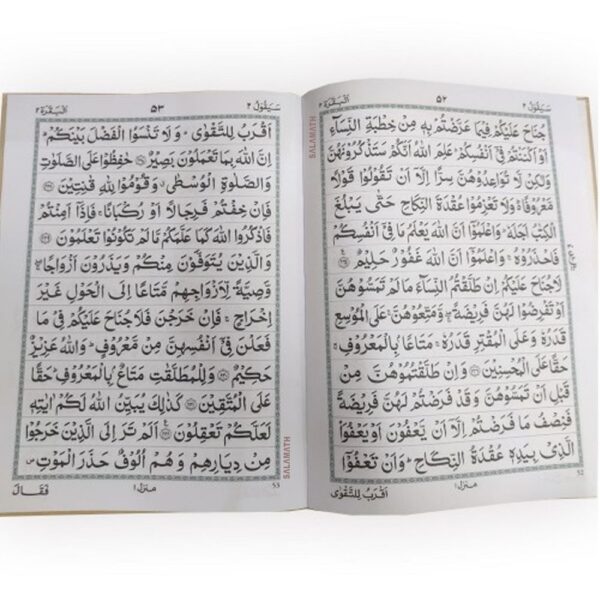 سَيَقُوْلُ ٢
٥٢
اَلْبَقَرَة ٢
جُنَاحَ عَلَيْكُمْ فِيْمَا عَرَّضْتُمْ بِهٖ مِنْ خِطْبَةِ النِّسَآءِ
اَوْ اَكْنَنْتُمْ فِيْٓ اَنْفُسِكُمْ ؕ عَلِمَ اللّٰهُ اَنَّكُمْ سَتَذْكُرُوْنَهُنَّ
وَلٰكِنْ لَّا تُوَاعِدُوْهُنَّ سِرًّا اِلَّآ اَنْ تَقُوْلُوْا قَوْلًا
مَّعْرُوْفًا ؕ وَلَا تَعْزِمُوْا عُقْدَةَ النِّكَاحِ حَتّٰى يَبْلُغَ
الْكِتٰبُ اَجَلَهٗ ؕ وَاعْلَمُوْٓا اَنَّ اللّٰهَ يَعْلَمُ مَا فِيْٓ اَنْفُسِكُمْ
فَاحْذَرُوْهُ ۚ وَاعْلَمُوْٓا اَنَّ اللّٰهَ غَفُوْرٌ حَلِيْمٌ
لَا جُنَاحَ عَلَيْكُمْ اِنْ طَلَّقْتُمُ النِّسَآءَ مَا لَمْ تَمَسُّوْهُنَّ
اَوْ تَفْرِضُوْا لَهُنَّ فَرِيْضَةً ۖ وَّمَتِّعُوْهُنَّ ۚ عَلَى الْمُوْسِعِ
قَدَرُهٗ وَعَلَى الْمُقْتِرِ قَدَرُهٗ ۚ مَتَاعًاۢ بِالْمَعْرُوْفِ ۚ
حَقًّا عَلَى الْمُحْسِنِيْنَ وَاِنْ طَلَّقْتُمُوْهُنَّ مِنْ
قَبْلِ اَنْ تَمَسُّوْهُنَّ وَقَدْ فَرَضْتُمْ لَهُنَّ فَرِيْضَةً
فَنِصْفُ مَا فَرَضْتُمْ اِلَّآ اَنْ يَّعْفُوْنَ اَوْ يَعْفُوَا
الَّذِيْ بِيَدِهٖ عُقْدَةُ النِّكَاحِ ؕ وَاَنْ تَعْفُوْٓا
اَقْرَبُ لِلتَّقْوٰى
منزل ١
52
SALAMATH
سَيَقُوْلُ ٢
٥٣
اَلْبَقَرَة ٢
اَقْرَبُ لِلتَّقْوٰى ؕ وَلَا تَنْسَوُا الْفَضْلَ بَيْنَكُمْ ؕ
اِنَّ اللّٰهَ بِمَا تَعْمَلُوْنَ بَصِيْرٌ حٰفِظُوْا عَلَى الصَّلَوٰتِ
وَالصَّلٰوةِ الْوُسْطٰى ۗ وَقُوْمُوْا لِلّٰهِ قٰنِتِيْنَ
فَاِنْ خِفْتُمْ فَرِجَالًا اَوْ رُكْبَانًا ۚ فَاِذَآ اَمِنْتُمْ
فَاذْكُرُوا اللّٰهَ كَمَا عَلَّمَكُمْ مَّا لَمْ تَكُوْنُوْا تَعْلَمُوْنَ
وَالَّذِيْنَ يُتَوَفَّوْنَ مِنْكُمْ وَيَذَرُوْنَ اَزْوَاجًا ۖ
وَّصِيَّةً لِّاَزْوَاجِهِمْ مَّتَاعًا اِلَى الْحَوْلِ غَيْرَ
اِخْرَاجٍ ۚ فَاِنْ خَرَجْنَ فَلَا جُنَاحَ عَلَيْكُمْ فِيْ مَا
فَعَلْنَ فِيْٓ اَنْفُسِهِنَّ مِنْ مَّعْرُوْفٍ ؕ وَاللّٰهُ عَزِيْزٌ
حَكِيْمٌ وَلِلْمُطَلَّقٰتِ مَتَاعٌۢ بِالْمَعْرُوْفِ ؕ حَقًّا
عَلَى الْمُتَّقِيْنَ كَذٰلِكَ يُبَيِّنُ اللّٰهُ لَكُمْ اٰيٰتِهٖ
لَعَلَّكُمْ تَعْقِلُوْنَ اَلَمْ تَرَ اِلَى الَّذِيْنَ خَرَجُوْا
مِنْ دِيَارِهِمْ وَهُمْ اُلُوْفٌ حَذَرَ الْمَوْتِ
فَقَالَ
منزل ١
53
SALAMATH